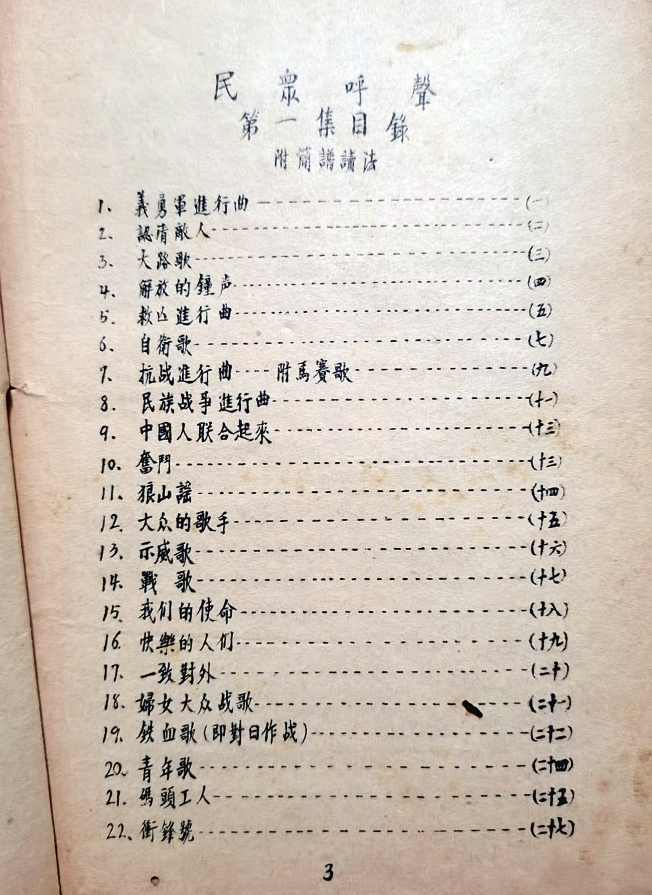 民衆呼聲
第一集目錄
附簡譜讀法
1. 義勇軍進行曲 (一)
2. 認清敵人 (二)
3. 大路歌 (三)
4. 解放的鐘声 (四)
5. 救亡進行曲 (五)
6. 自衛歌 (七)
7. 抗战進行曲 附馬賽歌 (九)
8. 民族战爭進行曲 (十一)
9. 中國人联合起來 (十三)
10. 奮鬥 (十三)
11. 狼山謡 (十四)
12. 大众的歌手 (十五)
13. 示威歌 (十六)
14. 戰歌 (十七)
15. 我们的使命 (十八)
16. 快樂的人们 (十九)
17. 一致對外 (二十)
18. 婦女大众战歌 (二十一)
19. 鉄血歌(即對日作战) (二十二)
20. 青年歌 (二十四)
21. 碼頭工人 (二十五)
22. 衝鋒號 (二十七)
3